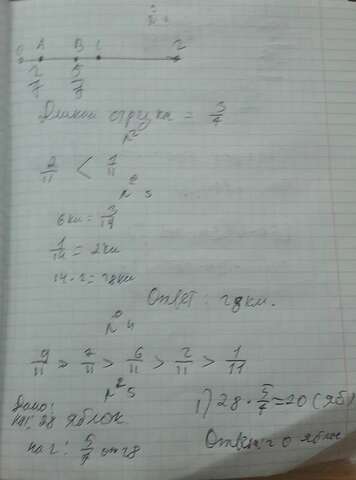 0 A B 1 2
2/7 5/7
Длина отрезка = 3/7
№2
2/11 < 7/11
№3
6км = 3/14
1/14 = 2км
14·2=28км
Ответ: 28км.
№4
9/11 > 7/11 > 6/11 > 2/11 > 1/11
№5
Дано:
28 яблок
на 2: 5/7 от 28
1) 28 · 5/7 = 20 (ябл
Ответ: 20 яблок